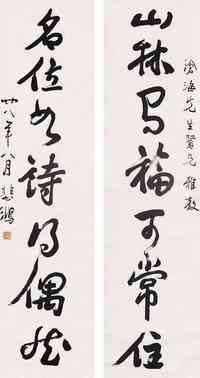 滄海先生賢兄雅教
山林福可常住
名位如詩得偶然
廿八年八月 悲鴻